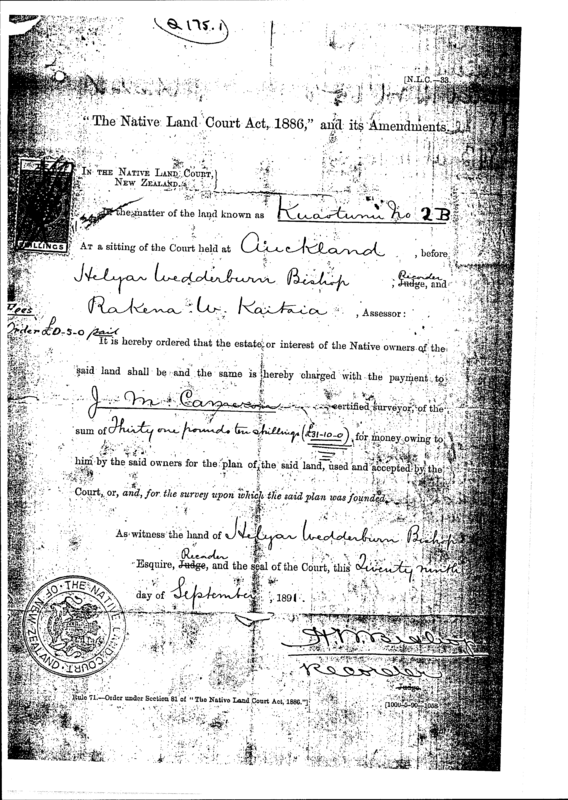 Q 175.1
[N.L.C.—33.
"The Native Land Court Act, 1886," and its Amendments.
IN THE NATIVE LAND COURT,
NEW ZEALAND.
In the matter of the land known as Kuaotunu No 2B
AT a sitting of the Court held at Auckland, before
Helyar Wedderburn Bishop, Recorder Judge, and
Rakena W. Kaitaia, Assessor:
Fees
Order £0-5-0 paid
It is hereby ordered that the estate or interest of the Native owners of the
said land shall be and the same is hereby charged with the payment to
J. M. Cameron certified surveyor, of the
sum of Thirty one pounds ten shillings (£31-10-0), for money owing to
him by the said owners for the plan of the said land, used and accepted by the
Court, or, and, for the survey upon which the said plan was founded.
As witness the hand of Helyar Wedderburn Bishop
Esquire, Recorder Judge, and the seal of the Court, this Twenty ninth
day of September, 1891.
SHILLINGS
SEAL OF THE NATIVE LAND COURT OF NEW ZEALAND
H W Bishop
Recorder
Judge.
Rule 71.—Order under Section 81 of "The Native Land Court Act, 1886."]
[1000-5-90—1058